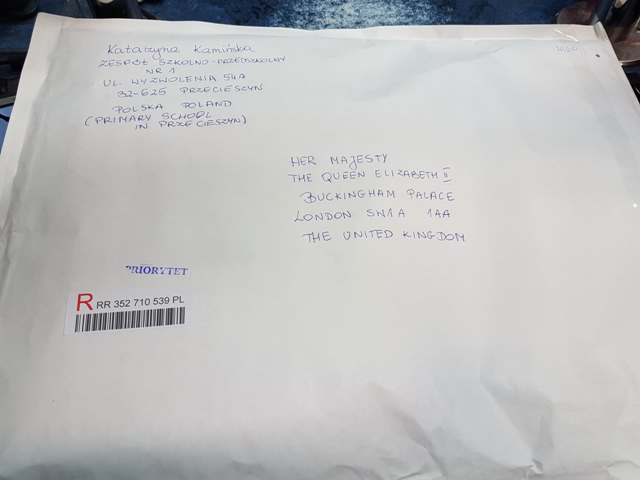 Katarzyna Kamińska
ZESPÓŁ SZKOLNO-PRZEDSZKOLNY
NR 1
UL. WYZWOLENIA 54A
32-625 PRZECIESZYN
POLSKA POLAND
(PRIMARY SCHOOL
IN PRZECIESZYN)
HER MAJESTY
THE QUEEN ELIZABETH II
BUCKINGHAM PALACE
LONDON SW1A 1AA
THE UNITED KINGDOM
PRIORYTET
R RR 352 710 539 PL